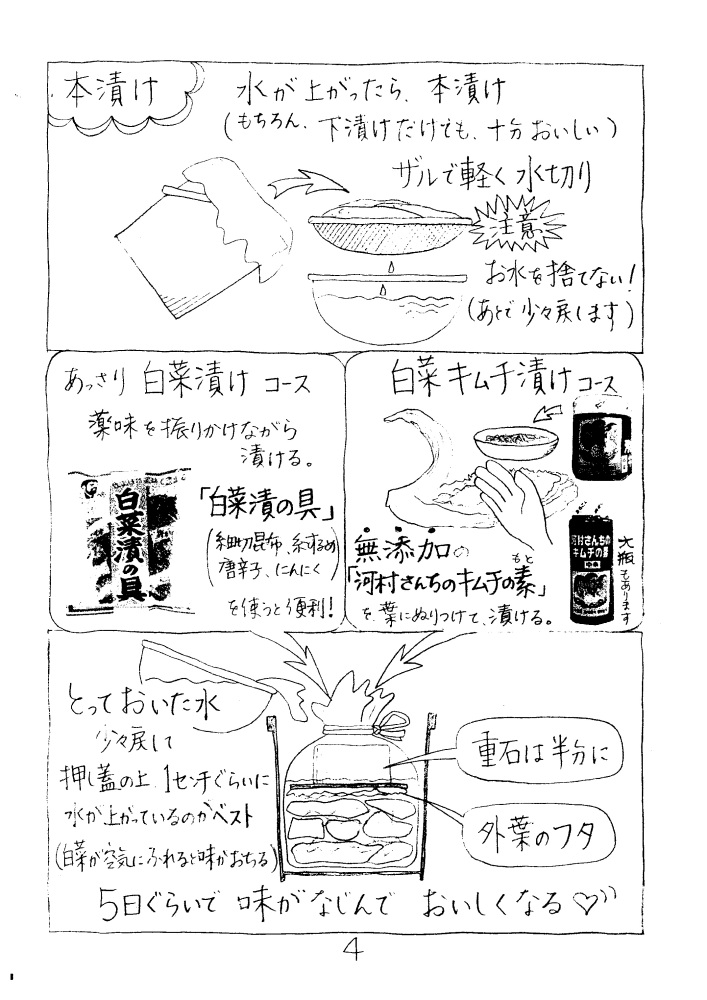 本漬け
水が上がったら、本漬け
(もちろん、下漬けだけでも、十分おいしい)
ザルで軽く水切り
注意
お水を捨てない!
(あとで少々戻します)
あっさり 白菜漬け コース
薬味を振りかけながら
漬ける。
白菜漬の具
「白菜漬の具」
(細切昆布、糸するめ
唐辛子、にんにく)
を使うと便利!
白菜キムチ漬けコース
無添加の
もと
「河村さんちのキムチの素」
を、葉にぬりつけて、漬ける。
河村さんちの
キムチの素
中辛
大瓶もあります
とっておいた水
少々戻して
押し蓋の上、1センチぐらいに
水が上がっているのがベスト
(白菜が空気にふれると味がおちる)
重石は半分に
外葉のフタ
5日ぐらいで 味がなじんで おいしくなる♡
4